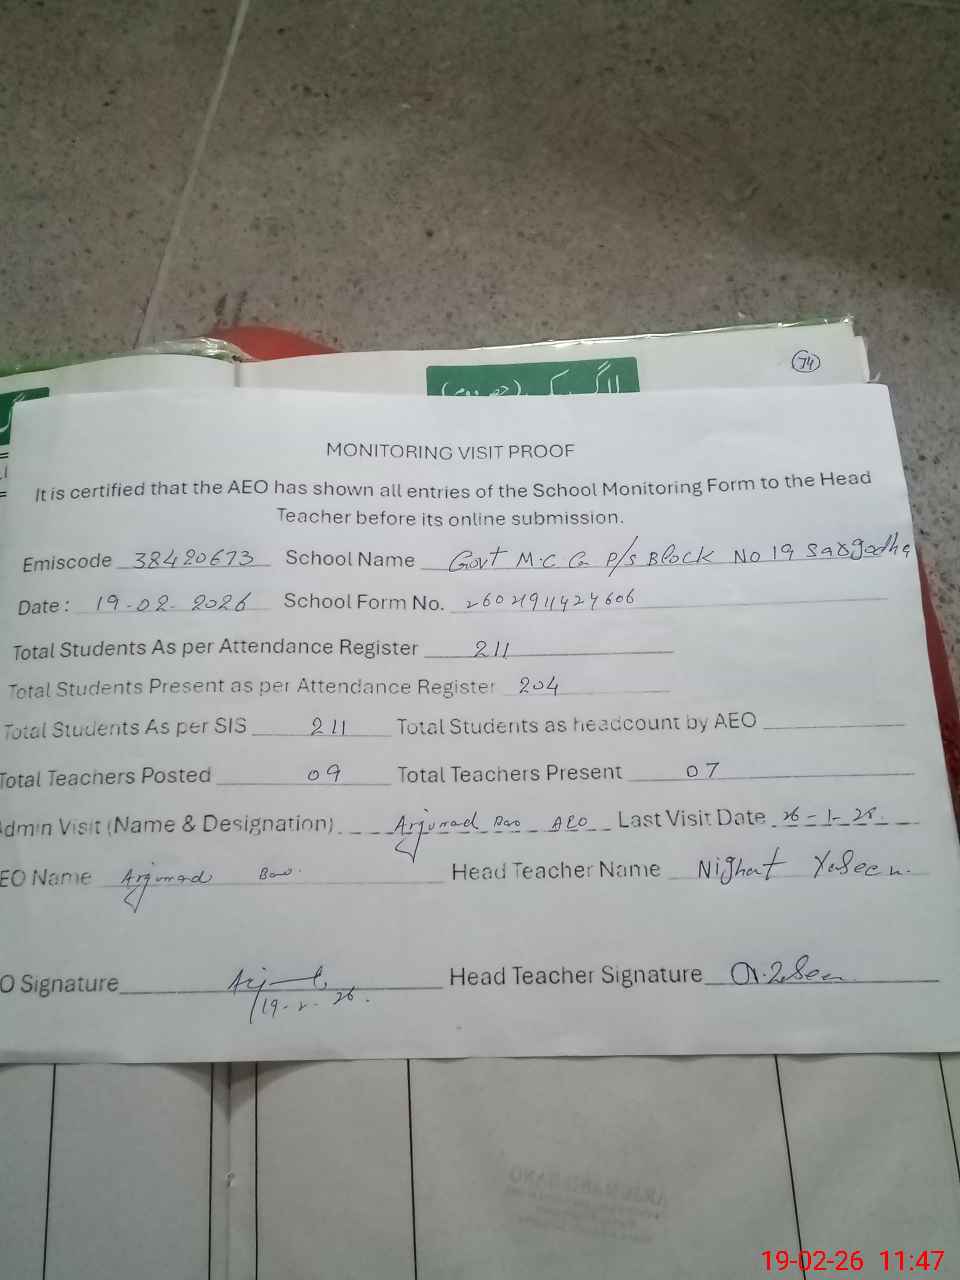 74
MONITORING VISIT PROOF
It is certified that the AEO has shown all entries of the School Monitoring Form to the Head
Teacher before its online submission.
Emiscode 38420673 School Name Govt M.C G P/S Block No 19 Sargodha
Date : 19-02-2026 School Form No. 26021911424606
Total Students As per Attendance Register 211
Total Students Present as per Attendance Register 204
Total Students As per SIS 211 Total Students as headcount by AEO
Total Teachers Posted 09 Total Teachers Present 07
Admin Visit (Name & Designation) Arjumad Bano AEO Last Visit Date 26-1-26
EO Name Arjumad Bano Head Teacher Name Nighat Yaseen
O Signature 19-2-26. Head Teacher Signature
19-02-26 11:47